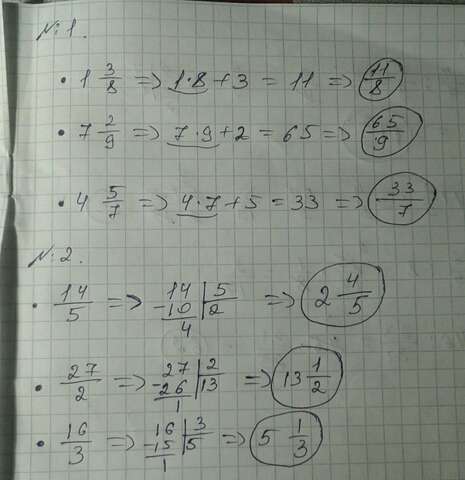 №1.
• 1 3/8 => 1·8+3 = 11 => 11/8
• 7 2/9 => 7·9+2 = 65 => 65/9
• 4 5/7 => 4·7+5 = 33 => 33/7
№2.
• 14/5 => 14 | 5 => 2 4/5
-10 | 2
4
• 27/2 => 27 | 2 => 13 1/2
-26 | 13
1
• 16/3 => 16 | 3 => 5 1/3
-15 | 5
1